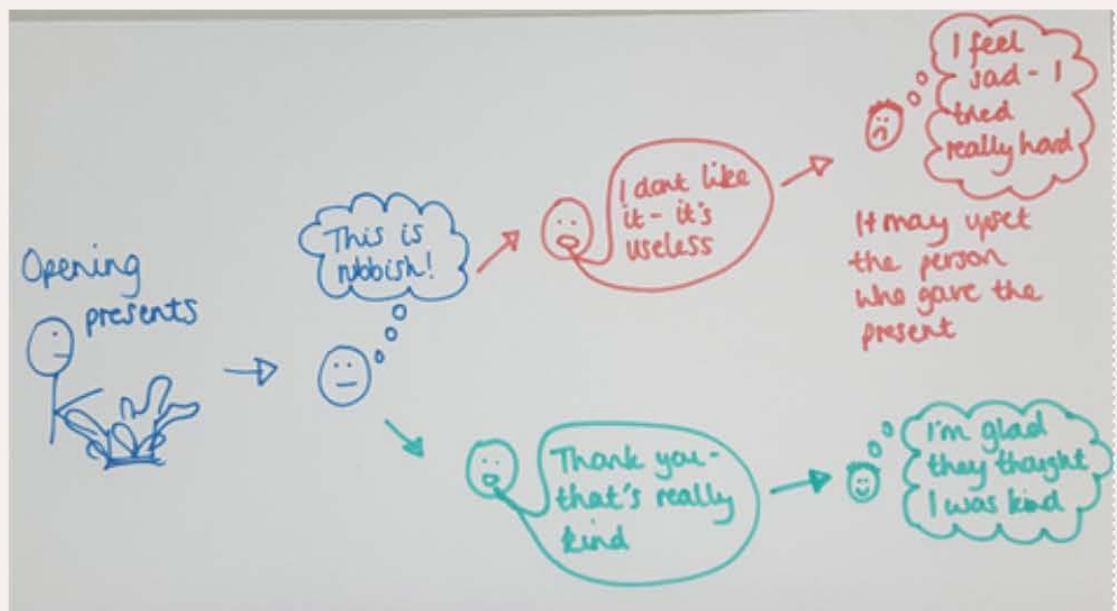 Opening
presents
This is
rubbish!
I dont like
it - it's
useless
I feel
sad - I
tried
really hard
It may upset
the person
who gave the
present
Thank you -
that's really
kind
I'm glad
they thought
I was kind